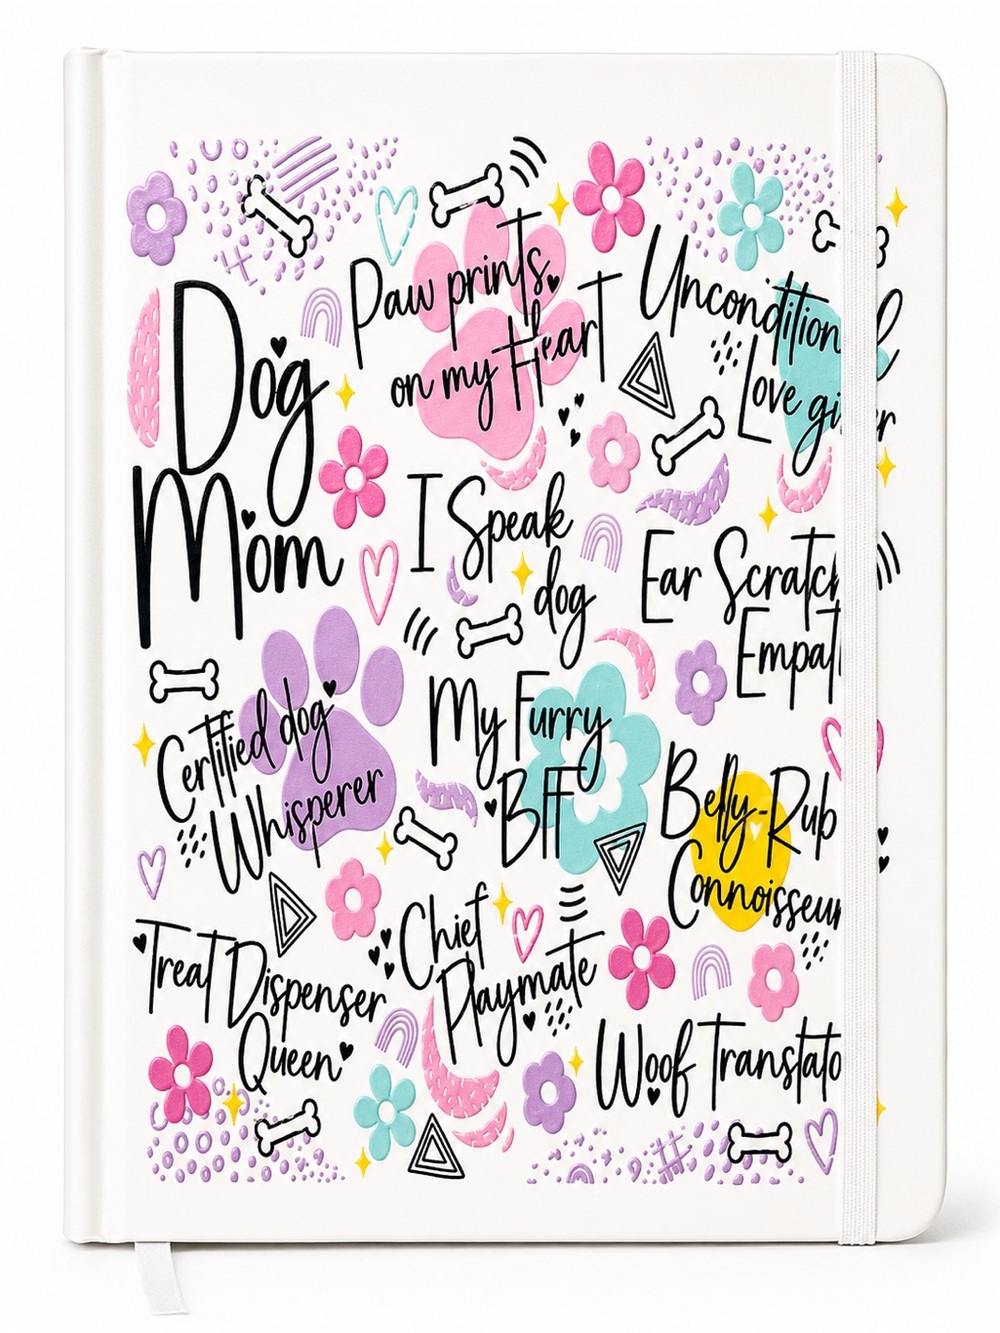 Dog
Mom
Paw prints
on my Heart
Love
I Speak
dog
Ear
My Furry
BFF
Certified dog
Whisperer
Belly-Rub
Connoisseur
Chief
Playmate
Treat Dispenser
Queen
Woof